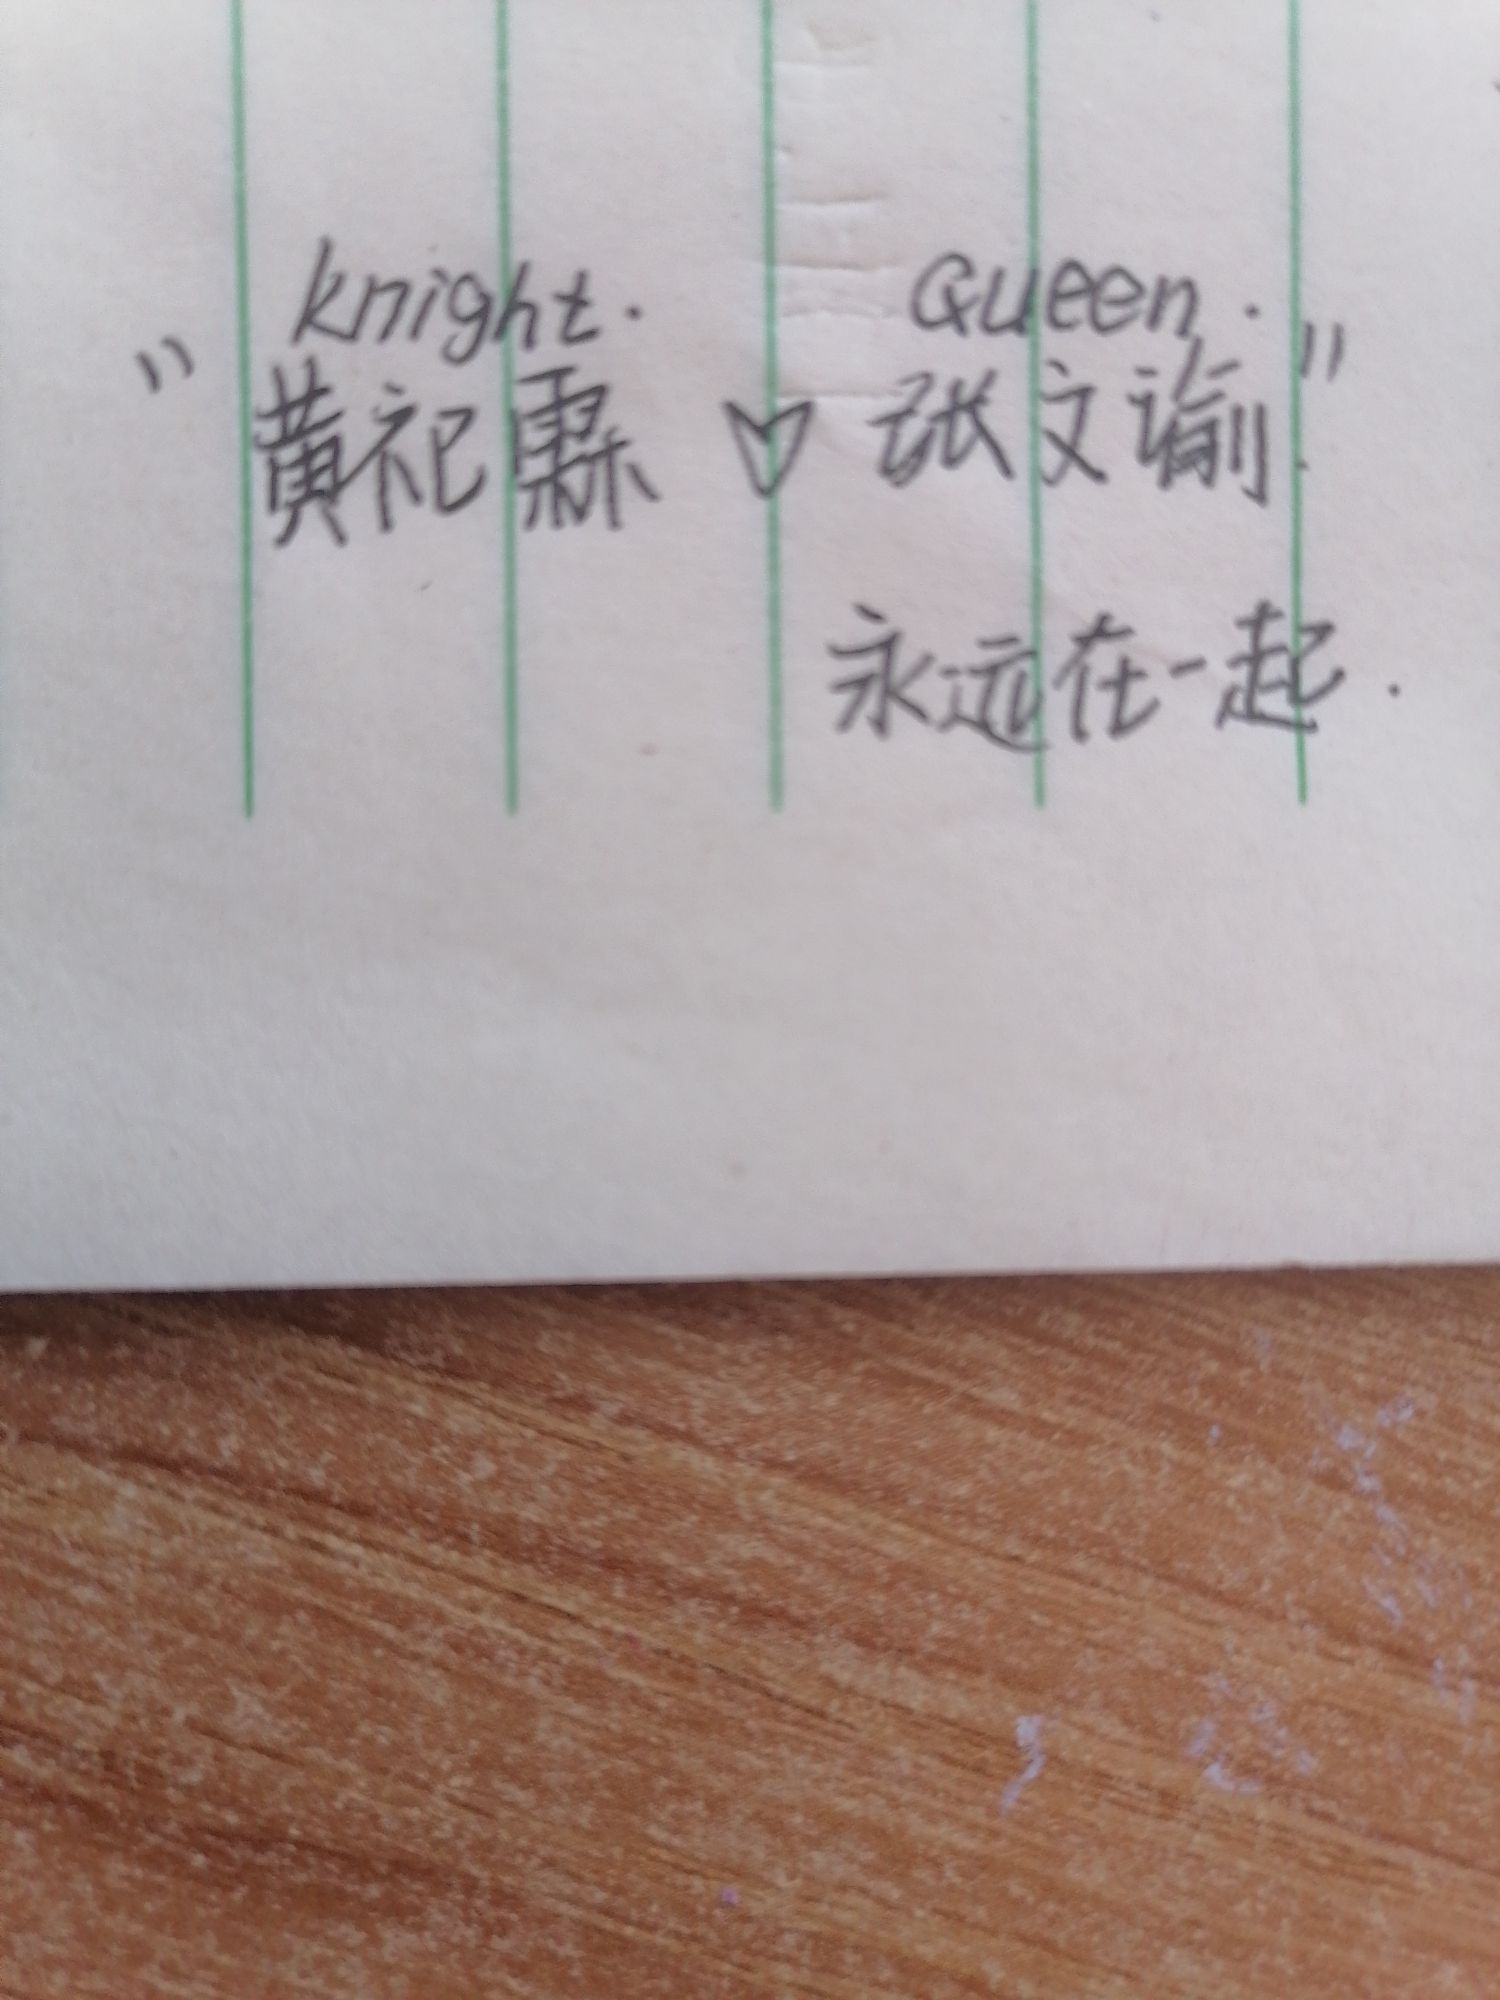 knight. Queen.
"黄祀霖♡张文谕"
永远在一起.